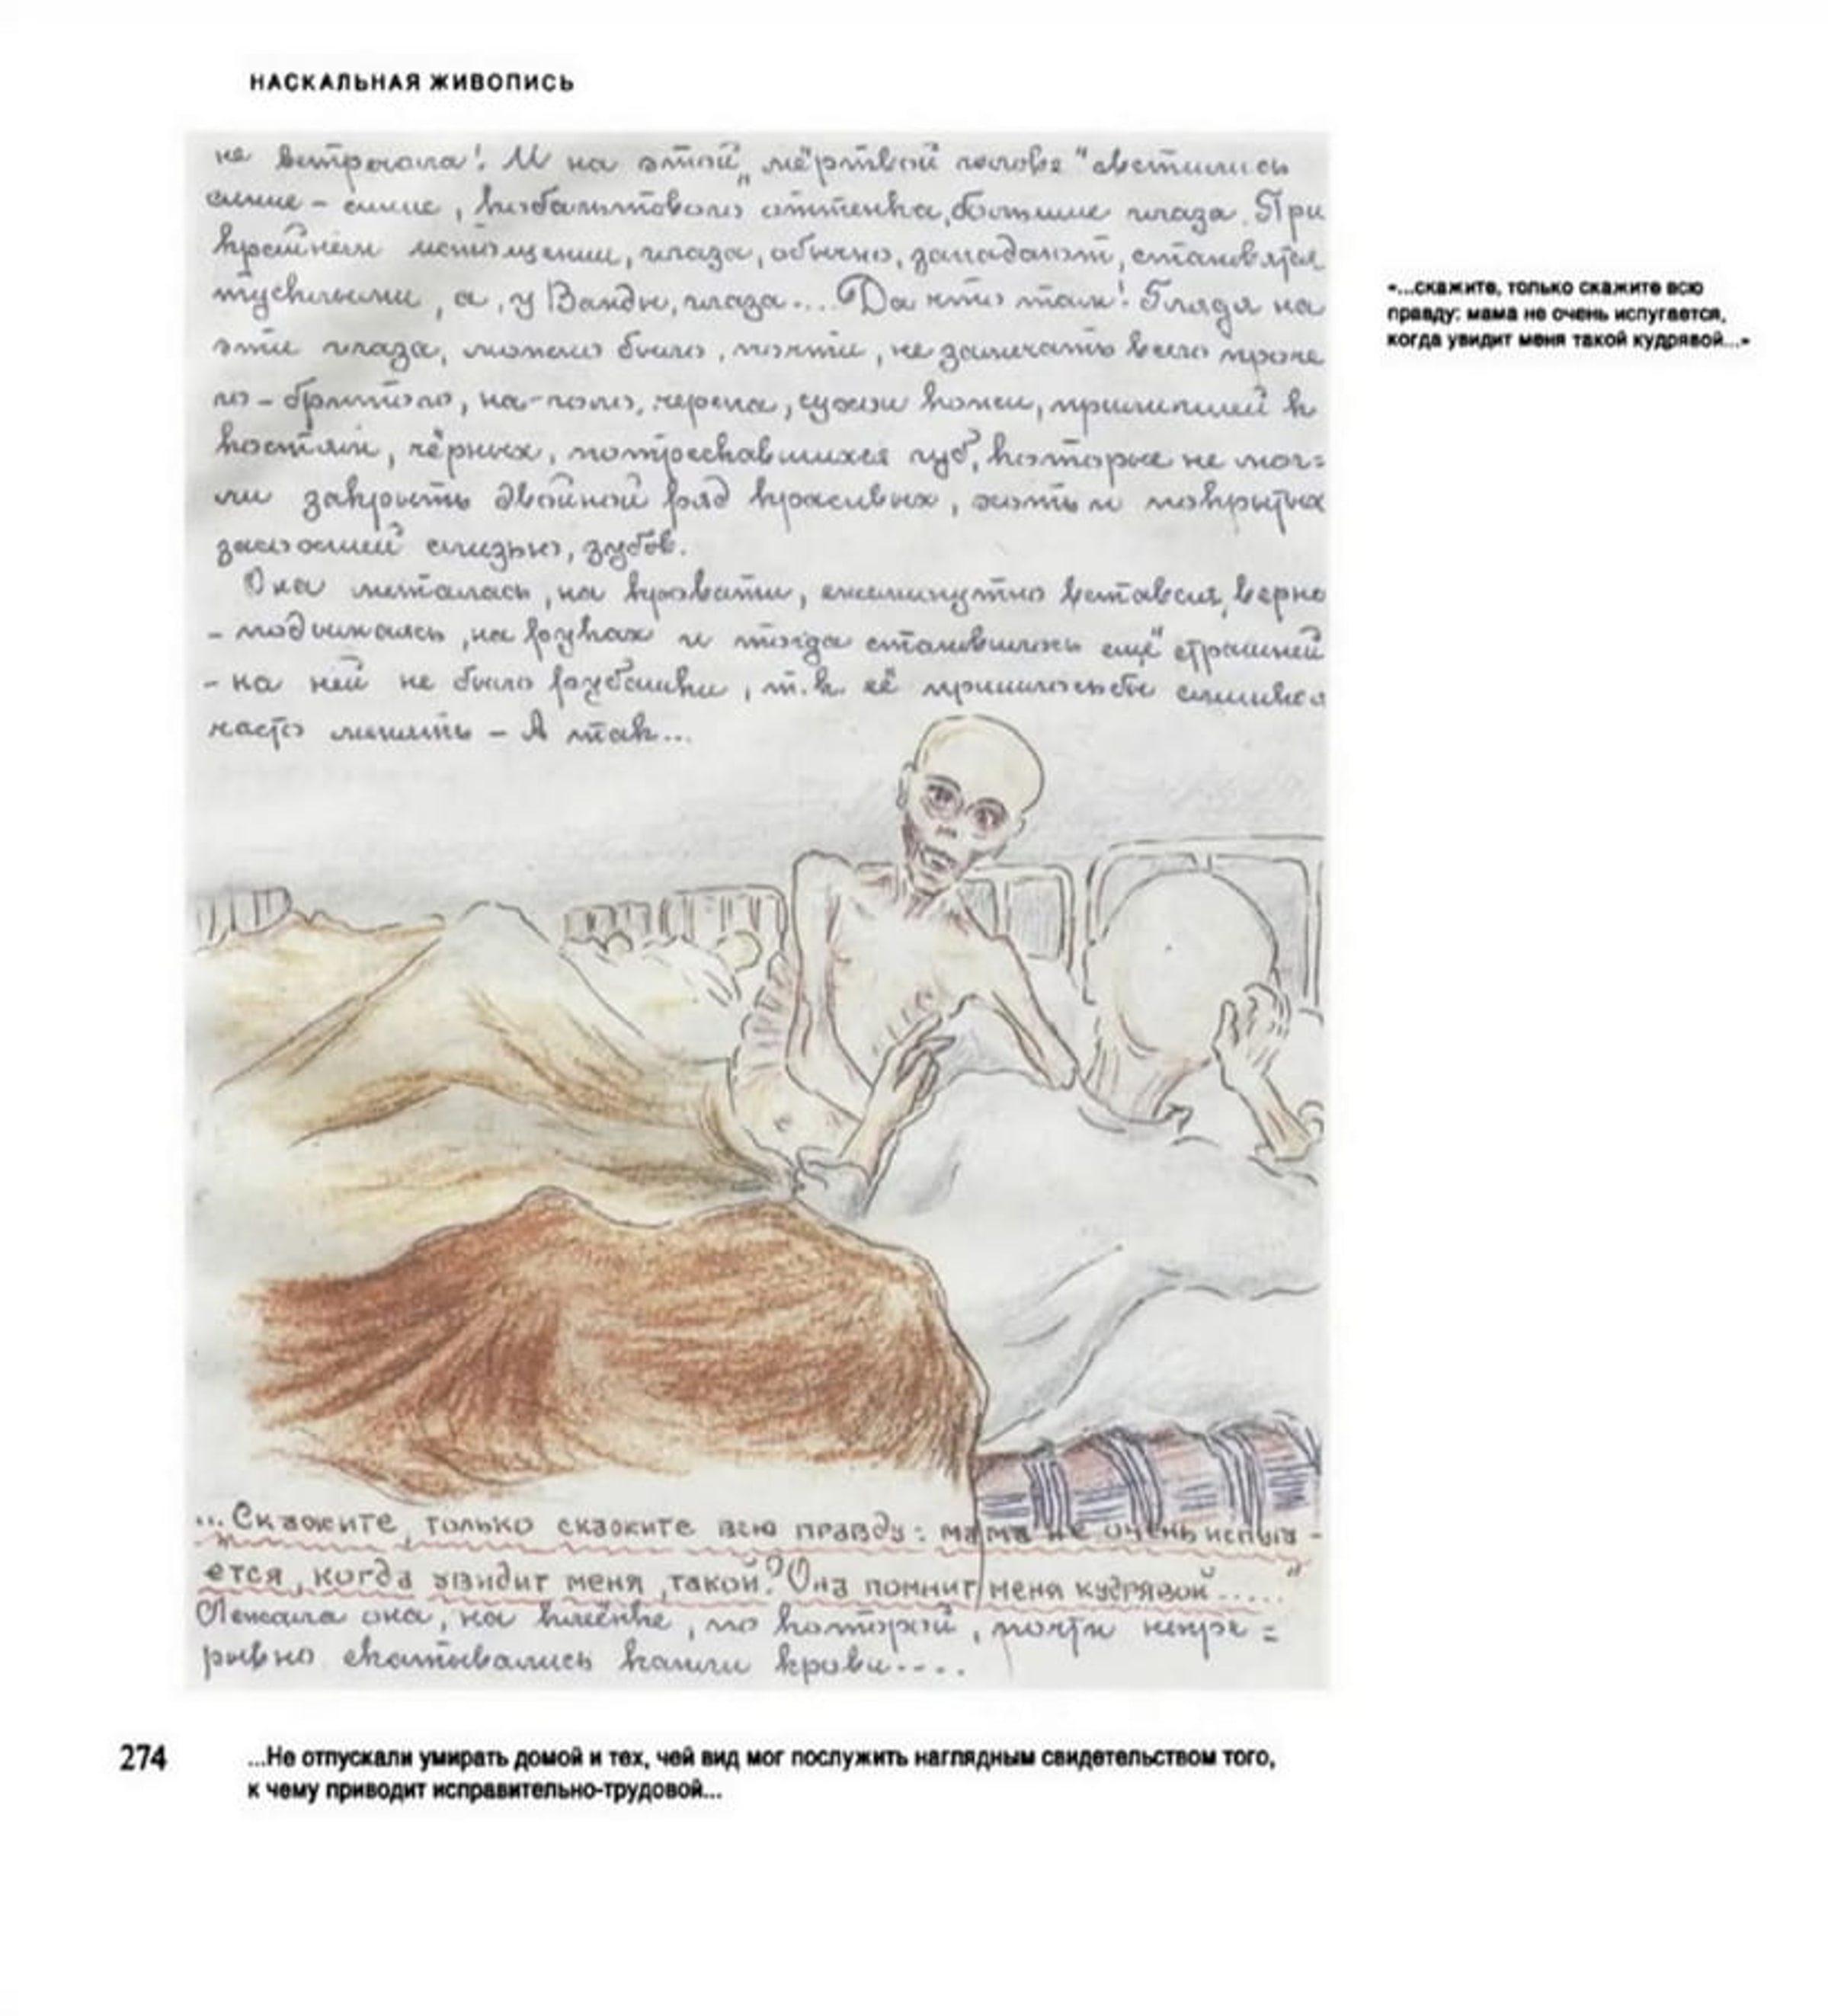 НАСКАЛЬНАЯ ЖИВОПИСЬ
не встречала! И на этой „мёртвой голове" светились
синие-синие, кобальтового оттенка, большие глаза. При
крайнем истощении, глаза, обычно, западают, становятся
тусклыми, а, у Ванды, глаза... Да что там! Глядя на
эти глаза, можно было, почти, не замечать всего проче
го - бритого, на-голо, черепа, сухой кожи, прилипшей к
костям, чёрных, потрескавшихся губ, которые не мог=
ли закрыть двойной ряд красивых, хоть и покрытых
засохшей слизью, зубов.
Она металась, на кровати, ежеминутно вставая, верне
- поднимаясь, на руках и тогда становилось ещё страшней
- на ней не было рубашки, т.к. её пришлось бы слишком
часто менять - А так...
«...скажите, только скажите всю
правду: мама не очень испугается,
когда увидит меня такой кудрявой...»
...Скажите, только скажите всю правду: мама не очень испуга-
ется, когда увидит меня, такой? Она помнит меня кудрявой....."
Лежала она, на клеёнке, по которой, почти непре=
рывно скатывались капли крови....
274
...Не отпускали умирать домой и тех, чей вид мог послужить наглядным свидетельством того,
к чему приводит исправительно-трудовой...